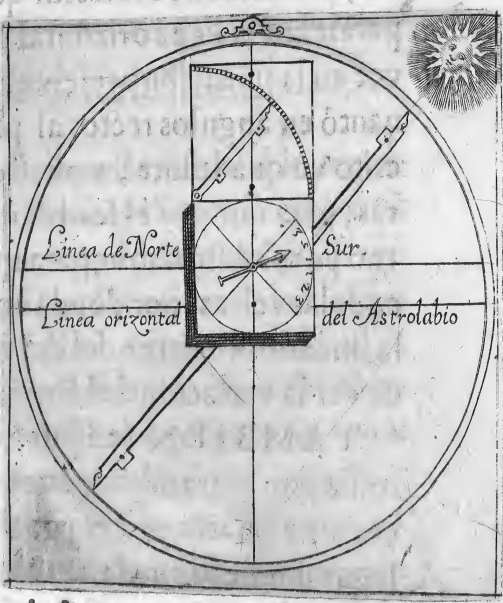 Linea de Norte Sur.
Linea orizontal del Astrolabio